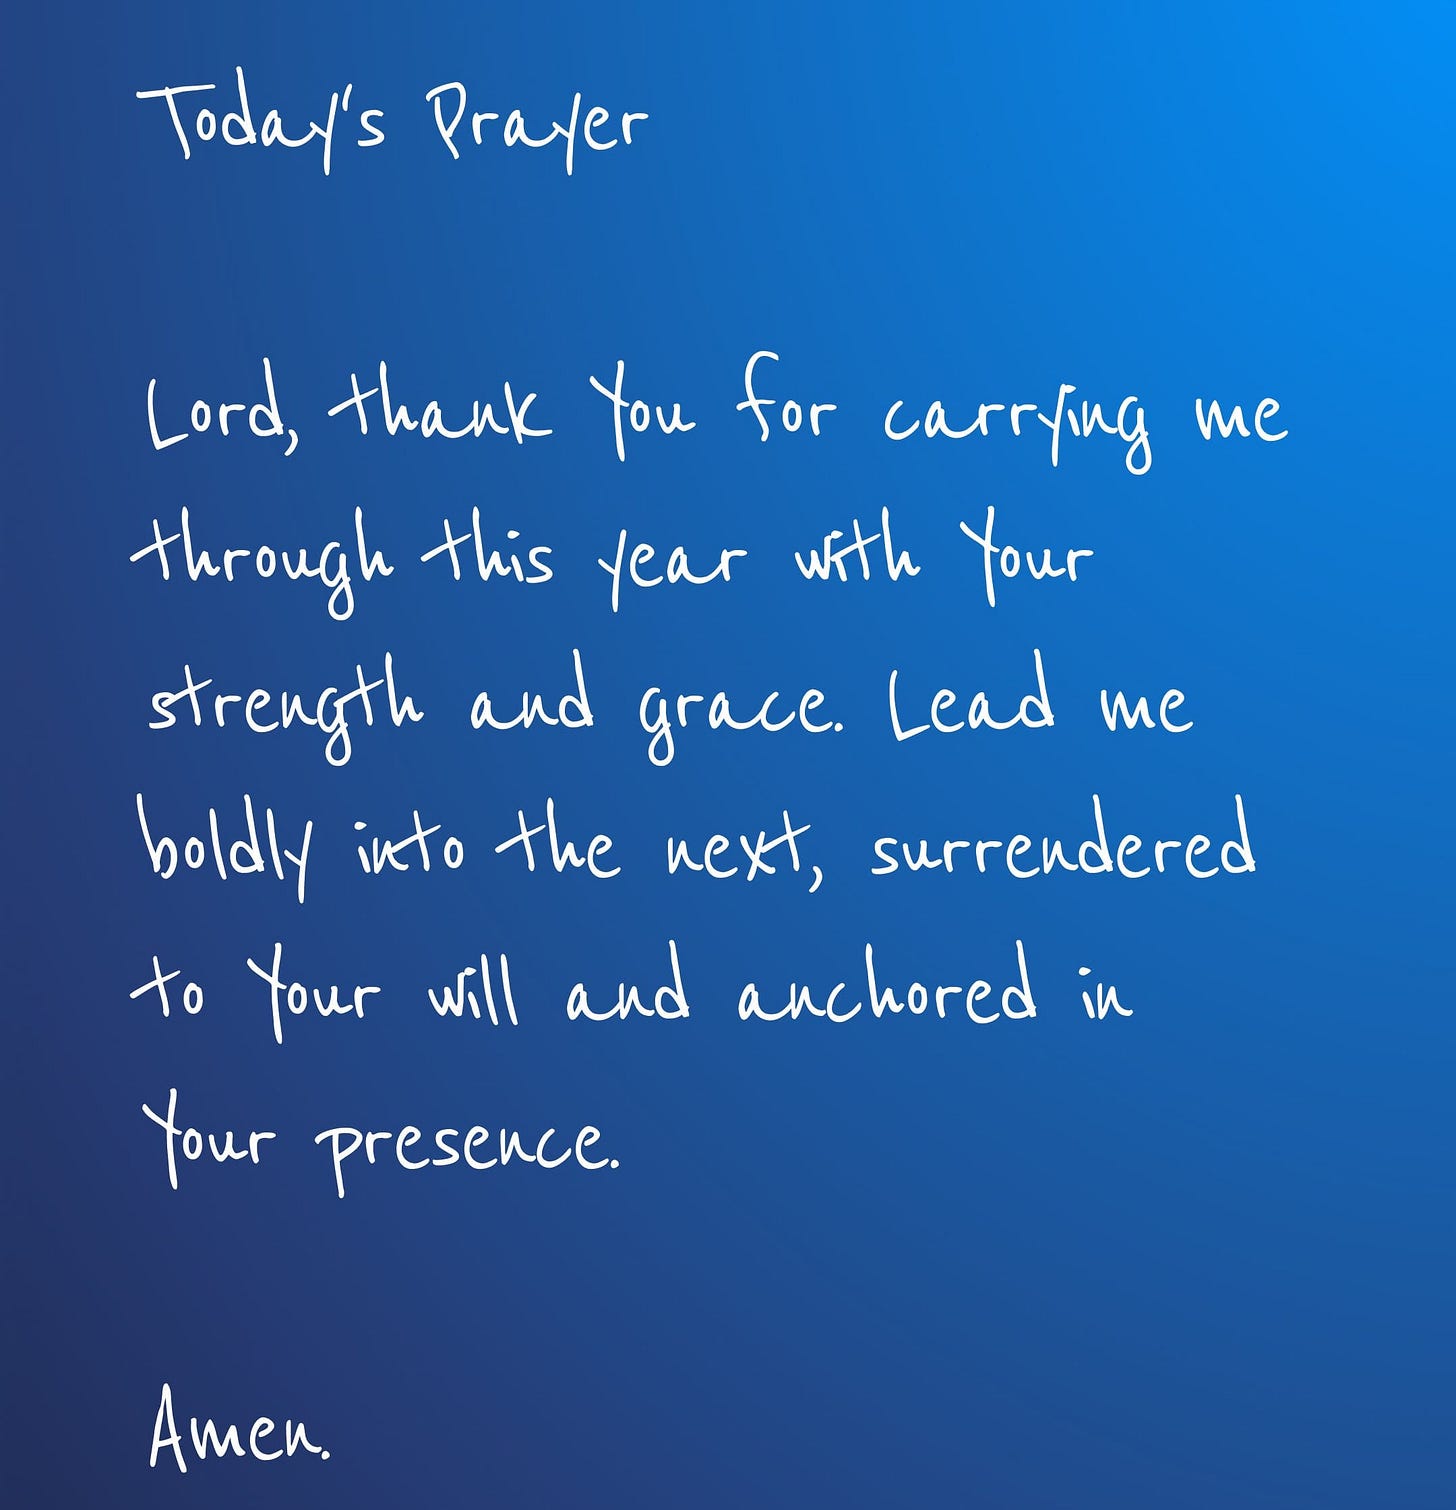 Today's Prayer
Lord, thank You for carrying me
through this year with Your
strength and grace. Lead me
boldly into the next, surrendered
to Your will and anchored in
Your presence.
Amen.